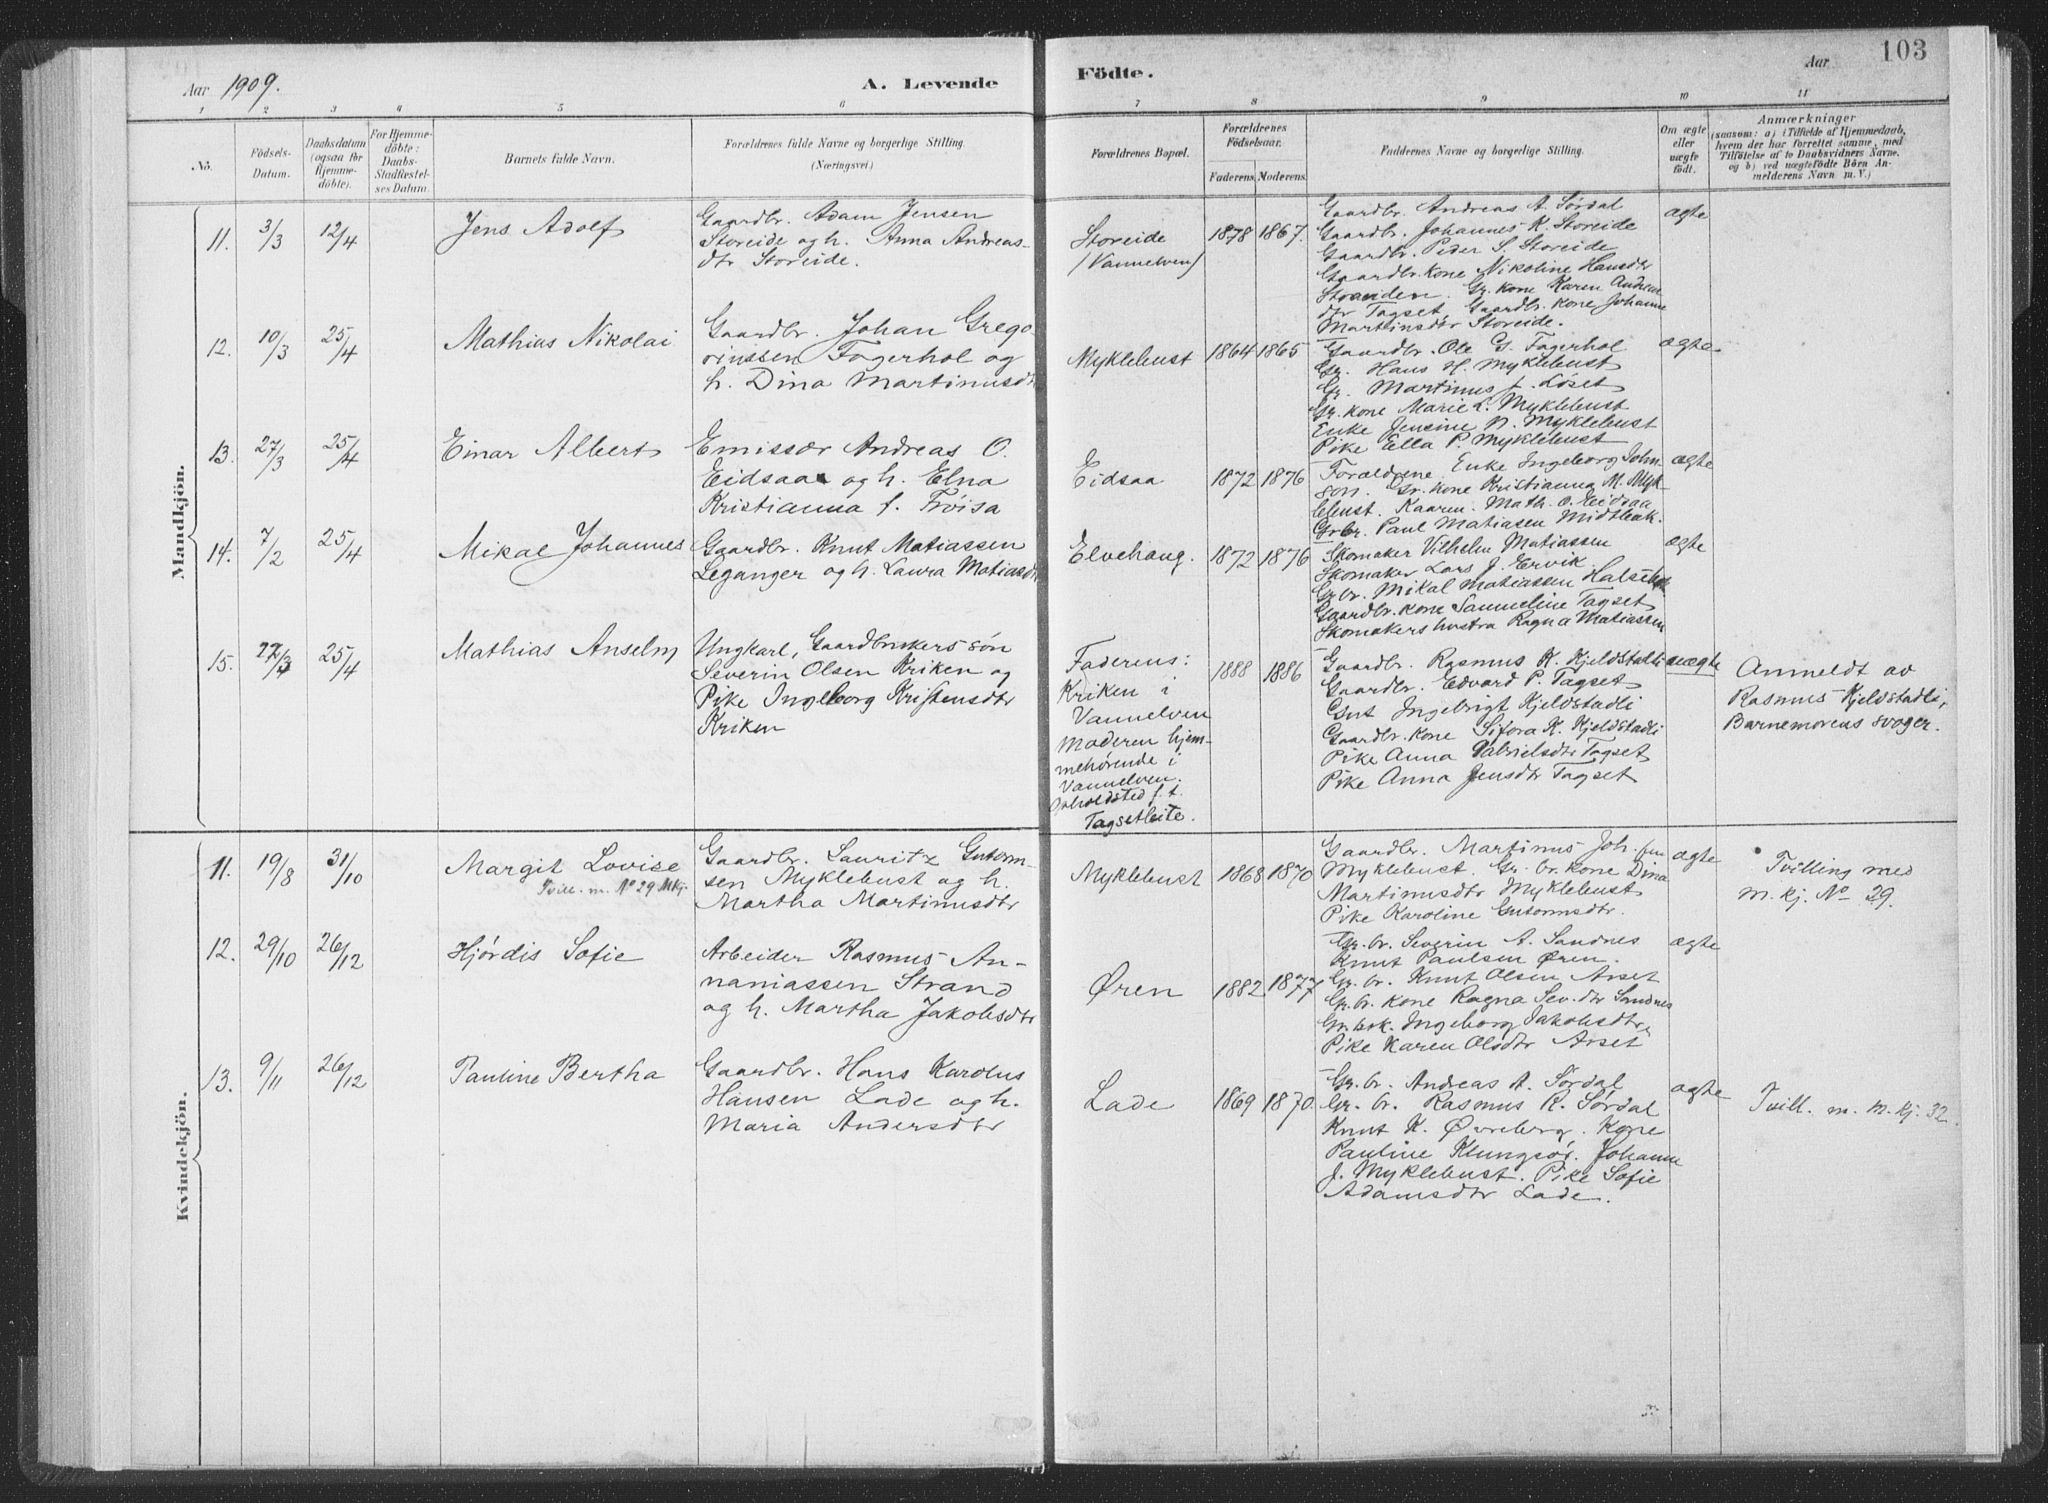 Aar 1909.
A. Levende
Födte.
Aar
103
1 2 3 4 5 6 7 8 9 10 11
No.
Födsels-
Datum.
Daabsdatum
(ogsaa for
Hjemme-
döbte).
For Hjemme-
döbte:
Daabs-
Stadfæstel-
ses Datum.
Barnets fulde Navn.
Forældrenes fulde Navne og borgerlige Stilling.
(Næringsvei)
Forældrenes Bopæl.
Forældrenes
Födselsaar.
Faderens. Moderens.
Faddernes Navne og borgerlige Stilling.
Om ægte
eller
uægte
födt.
Anmærkninger
(saasom: a) i Tilfælde af Hjemmedaab,
hvem der har forrettet samme, med
Tilföielse af to Daabsvidners Navne.
og b) ved uægtefödte Börn An-
melderens Navn m. V.)
Mandkjön.
11. 3/3 12/4
Jens Adolf
Gaardbr. Adam Jensen
Storeide og h. Anna Andreas-
dtr Storeide.
Storeide
(Vannelven)
1878 1867.
Gaardbr. Andreas A. Sørdal
Gaardbr. Johannes K. Storeide
Gaardbr. Peder S. Storeide
Gaardbr. kone Nikoline Hansdtr
Storeiden. Gr. kone Karen Andreas
dtr Tagset, Gaardbr. kone Johanne
Martinsdtr Storeide.
ægte
12. 10/3 25/4
Mathias Nikolai
Gaardbr. Johan Grego
riussen Fagerhol og
h. Dina Martinusdtr
Myklebust
1864 1865
Gaardbr. Ole G. Fagerhol
Gr. Hans H. Myklebust
Gr. Martinus J. Løset
Gr. kone Marie L. Myklebust
Enke Jensine N. Myklebust
Pike Ella P. Myklebust
ægte
13. 27/3 25/4
Einar Albert
Emissær Andreas O.
Eidsaa og h. Elna
Kristianna f. Frøisa
Eidsaa
1872 1876
Forældrene Enke Ingeborg John-
son. Gr. kone Kristianna M. Myk-
lebust. Kaaren. Math. O. Eidsaa
Grbr. Paul Matiasen Midtbak.
ægte
14. 7/2 25/4
Mikal Johannes
Gaardbr. Knut Matiassen
Leganger og h. Laura Matiasdtr
Elvehaug.
1872 1876
Skomaker Vilhelm Matiassen
Skomaker Lars J. Ervik.
Gr. br. Mikal Matiassen
Gaardbr. kone Sanneline Tagset
Skomakers hustru Ragna Matiassen
ægte
15. 22/3 25/4
Mathias Anselm
Ungkarl, Gaardbrukers søn
Severin Olsen Kriken og
Pike Ingeborg Kristensdtr
Kriken
Faderens:
Kriken i
Vannelven
Moderen hjem-
mehørende i
Vannelven.
Opholdsted f. t.
Tagsetleite.
1888 1886
Gaardbr. Rasmus K. Kjeldstadli
Gaardbr. Edvard P. Tagset
Gut Ingebrigt Kjeldstadli
Gaardbr. kone Sifora K. Kjeldstadli
Pike Anna Gabrielsdtr Tagset
Pike Anna Jensdtr Tagset
uægte
Anmeldt av
Rasmus Kjeldstadli,
Barnemorens svoger.
Kvindekjön.
11. 19/8 31/10
Margit Lovise
Tvill. m. No 29 Mkj.
Gaardbr. Lauritz Gutorm-
sen Myklebust og h.
Martha Martinusdtr
Myklebust
1868 1870
Gaardbr. Martinus Joh.
Myklebust. Gr. br. kone Dina
Martinusdtr Myklebust
Pike Karoline Gutormsdtr.
ægte
Tvilling med
m. kj. No 29.
12. 29/10 26/12
Hjørdis Sofie
Arbeider Rasmus An-
naniassen Strand
og h. Martha Jakobsdtr
Øren
1882 1877
Gr. br. Severin A. Sandnes
Knut Paulsen Øren.
Gr. br. Knut Olsen Arset
Gr. br. kone Ragna Sev. dtr Sandnes
Gr. brk. Ingeborg Jakobsdtr
Pike Karen Olsdtr Arset
ægte
13. 9/11 26/12
Pauline Bertha
Gaardbr. Hans Karolus
Hansen Lade og h.
Maria Andersdtr
Lade
1869 1870.
Gr. br. Andreas A. Sørdal
Gr. br. Rasmus R. Sørdal
Knut K. Øvreberg. Kone
Pauline Klungsør. Johanne
J. Myklebust. Pike Sofie
Adamsdtr Lade.
ægte
Tvill. m. m. kj. 32.